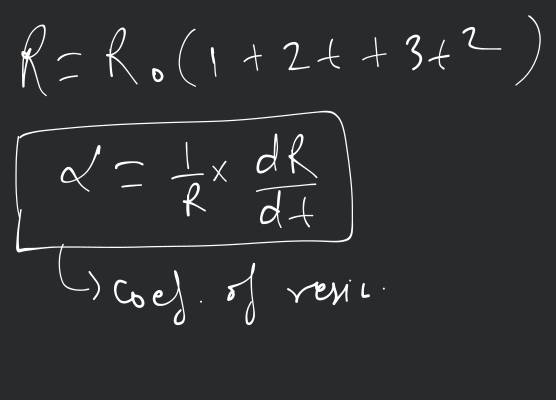 R = R₀(1 + 2t + 3t²)
α = 1/R × dR/dt
↳ coef. of resis.